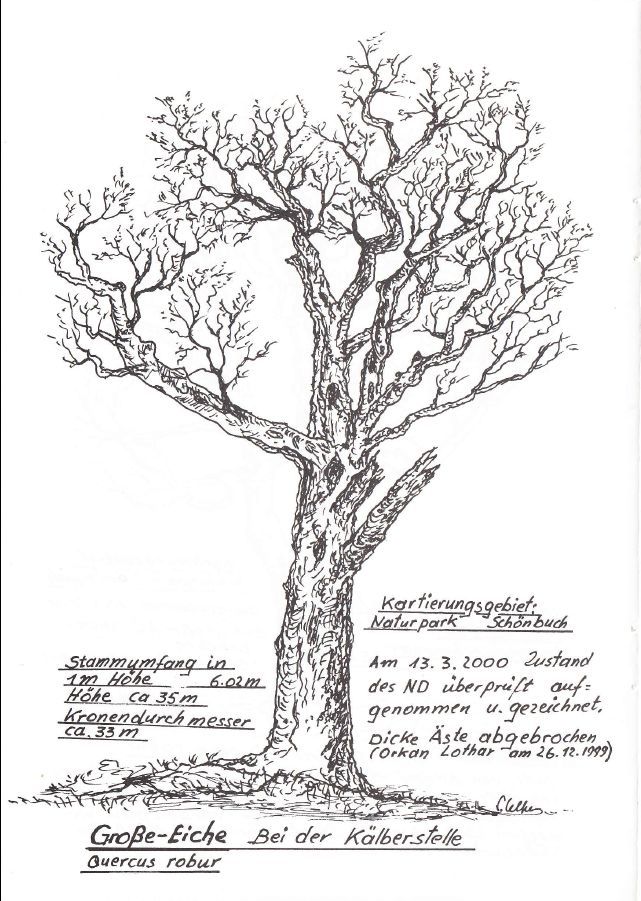 Kartierungsgebiet:
Naturpark Schönbuch
Stammumfang in
1m Höhe 6.02m
Höhe ca 35m
Kronendurchmesser
ca. 33m
Am 13.3.2000 Zustand
des ND überprüft auf=
genommen u. gezeichnet.
Dicke Äste abgebrochen
(Orkan Lothar am 26.12.1999)
Große-Eiche Bei der Kälberstelle
Quercus robur